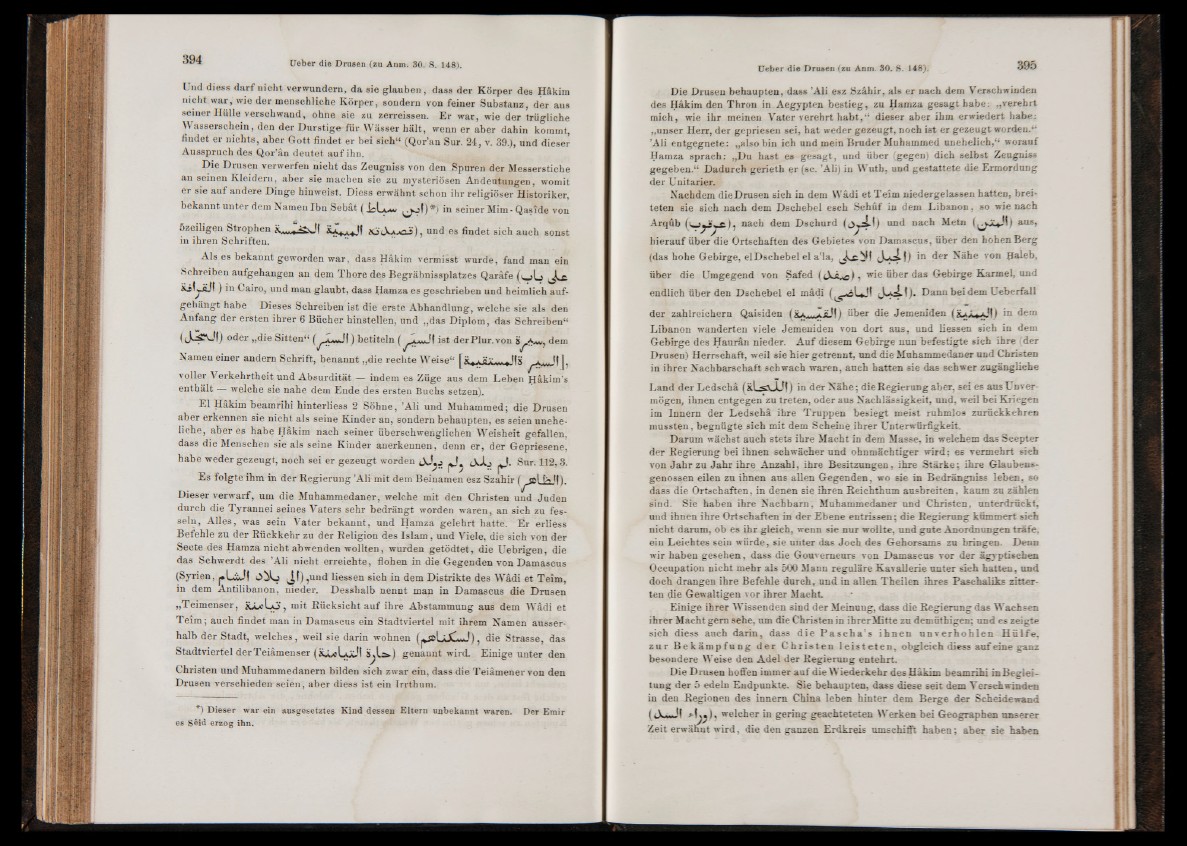 394
Ueber die Drusen (zu Anm. 30. S. 148).
Und diess darf nicht verwundern, da sie glauben, dass der Körper des Hâkim
nicht war, wie der menschliche Körper, sondern von feiner Substanz, der aus
seiner Hülle verschwand, ohne sie zu zerreissen. Er war, wie der trügliche
Wasserschein, den der Durstige für Wässer hält, wenn er aber dahin kommt,
findet er nichts, aber Gott findet er bei sich“ (Qor'an Sur. 24, v. 39.), und dieser
Ausspruch des Qorân deutet auf ihn.
Die Drusen verwerfen nicht das Zeugniss von den Spuren der Messerstiche
an seinen Kleidern, aber sie machen sie zu mysteriösen Andeutungen, womit
er sie auf andere Dinge hinweist. Diess erwähnt schon ihr religiöser Historiker,
bekannt unter dem Namen Ibn Sebât (ابن سباط) *) in seiner Mim-Qasîde von
5zeiligen Strophen (قصيدته الميمية المخمسة), und es findet sich auch sonst
in ihren Schriften.
Als es bekannt geworden war, dass Hâkim vermisst wurde, fand man ein
Schreiben aufgehangen an dem Thore des Begräbnissplatzes Qarâfe (على باب
القرافة) in Cairo, und man glaubt, dass Ḥamza es geschrieben und heimlich auf-
gehängt habe Dieses Schreiben ist die erste Abhandlung, welche sie als den
Anfang der ersten ihrer 6 Bücher hinstellen, und „das Diplom, das Schreiben“
(السجل) oder „die Sitten“ (السير) betiteln (السير ist der Plur. von سيرة, dem
Namen einer andern Schrift, benannt „die rechte Weise“ [السيرة المستقيمة],
voller Verkehrtheit und Absurdität — indem es Züge aus dem Leben Ḥâkim's
enthält — welche sie nahe dem Ende des ersten Buchs setzen).
El Hâkim beamrihî hinterliess 2 Söhne, 'Ali und Muhammed; die Drusen
aber erkennen sie nicht als seine Kinder an, sondern behaupten, es seien unehe-
liche, aber es habe Ḥâkim nach seiner überschwenglichen Weisheit gefallen,
dass die Menschen sie als seine Kinder anerkennen, denn er, der Gepriesene,
habe weder gezeugt, noch sei er gezeugt worden لم يلد ولم يولد Sur. 112, 3.
Es folgte ihm in der Regierung 'Ali mit dem Beinamen esz Szahir (الظاهر).
Dieser verwarf, um die Muhammedaner, welche mit den Christen und Juden
durch die Tyrannei seines Vaters sehr bedrängt worden waren, an sich zu fes-
seln, Alles, was sein Vater bekannt, und Ḥamza gelehrt hatte. Er erliess
Befehle zu der Rückkehr zu der Religion des Islam, und Viele, die sich von der
Secte des Hamza nicht abwenden wollten, wurden getödtet, die Uebrigen, die
das Schwerdt des 'Ali nicht erreichte, flohen in die Gegenden von Damascus
(Syrien, الى بلاد الشام), und liessen sich in dem Distrikte des Wâdi et Teîm,
in dem Antilibanon, nieder. Desshalb nennt man in Damascus die Drusen
„Teimenser, تيامنة, mit Rücksicht auf ihre Abstammung aus dem Wâdi et
Teîm; auch findet man in Damascus ein Stadtviertel mit ihrem Namen ausser-
halb der Stadt, welches, weil sie darin wohnen (لسكناهم), die Strasse, das
Stadtviertel der Teiâmenser (حارة التيامنة) genannt wird. Einige unter den
Christen und Muhammedanern bilden sich zwar ein, dass die Teiâmener von den
Drusen verschieden seien, aber diess ist ein Irrthum.
*) Dieser war ein ausgesetztes Kind dessen Eltern unbekannt waren. Der Emir
es Séid erzog ihn.
Ueber die Drusen (zu Anm. 30. S. 148).
395
Die Drusen behaupten, dass 'Ali esz Szâhir, als er nach dem Verschwinden
des Ḥâkim den Thron in Aegypten bestieg, zu Ḥamza gesagt habe: „verehrt
mich, wie ihr meinen Vater verehrt habt,“ dieser aber ihm erwiedert habe:
„unser Herr, der gepriesen sei, hat weder gezeugt, noch ist er gezeugt worden.“
'Ali entgegnete: „also bin ich und mein Bruder Muhammed unehelich,“ worauf
Ḥamza sprach: „Du hast es gesagt, und über (gegen) dich selbst Zeugniss
gegeben.“ Dadurch gerieth er (sc. 'Ali) in Wuth, und gestattete die Ermordung
der Unitarier.
Nachdem die Drusen sich in dem Wâdi et Teîm niedergelassen hatten, brei-
teten sie sich nach dem Dschebel esch Schûf in dem Libanon, so wie nach
Arqûb (عرقوب), nach dem Dschurd (الجرد) und nach Metn (المتن) aus,
hierauf über die Ortschaften des Gebietes von Damascus, über den hohen Berg
(das hohe Gebirge, el Dschebel el a'la, الجبل الاعلى) in der Nähe von Ḥaleb,
über die Umgegend von Ṣafed (صفد), wie über das Gebirge Karmel, und
endlich über den Dschebel el mâdi (الجبل الماضي). Dann bei dem Ueberfall
der zahlreichern Qaisiden (القيسية) über die Jemeniden (اليمنية) in dem
Libanon wanderten viele Jemeniden von dort aus, und liessen sich in dem
Gebirge des Ḥaurân nieder. Auf diesem Gebirge nun befestigte sich ihre (der
Drusen) Herrschaft, weil sie hier getrennt, und die Muhammedaner und Christen
in ihrer Nachbarschaft schwach waren, auch hatten sie das schwer zugängliche
Land der Ledschâ (اللجاة) in der Nähe; die Regierung aber, sei es aus Unver-
mögen, ihnen entgegen zu treten, oder aus Nachlässigkeit, und, weil bei Kriegen
im Innern der Ledschâ ihre Truppen besiegt meist ruhmlos zurückkehren
mussten, begnügte sich mit dem Scheine ihrer Unterwürfigkeit.
Darum wächst auch stets ihre Macht in dem Masse, in welchem das Scepter
der Regierung bei ihnen schwächer und ohnmächtiger wird; es vermehrt sich
von Jahr zu Jahr ihre Anzahl, ihre Besitzungen, ihre Stärke; ihre Glaubens-
genossen eilen zu ihnen aus allen Gegenden, wo sie in Bedrängniss leben, so
dass die Ortschaften, in denen sie ihren Reichthum ausbreiten, kaum zu zählen
sind. Sie haben ihre Nachbarn, Muhammedaner und Christen, unterdrückt,
und ihnen ihre Ortschaften in der Ebene entrissen; die Regierung kümmert sich
nicht darum, ob es ihr gleich, wenn sie nur wollte, und gute Anordnungen träfe,
ein Leichtes sein würde, sie unter das Joch des Gehorsams zu bringen. Denn
wir haben gesehen, dass die Gouverneurs von Damascus vor der ägyptischen
Occupation nicht mehr als 500 Mann reguläre Kavallerie unter sich hatten, und
doch drangen ihre Befehle durch, und in allen Theilen ihres Paschaliks zitter-
ten die Gewaltigen vor ihrer Macht.
Einige ihrer Wissenden sind der Meinung, dass die Regierung das Wachsen
ihrer Macht gern sehe, um die Christen in ihrer Mitte zu demüthigen; und es zeigte
sich diess auch darin, dass die Pascha's ihnen unverhohlen Hülfe,
zur Bekämpfung der Christen leisteten, obgleich diess auf eine ganz
besondere Weise den Adel der Regierung entehrt.
Die Drusen hoffen immer auf die Wiederkehr des Ḥâkim beamrihî in Beglei-
tung der 5 edeln Endpunkte. Sie behaupten, dass diese seit dem Verschwinden
in den Regionen des innern China leben hinter dem Berge der Scheidewand
(وراء السد), welcher in gering geachteteten Werken bei Geographen unserer
Zeit erwähnt wird, die den ganzen Erdkreis umschifft haben; aber sie haben